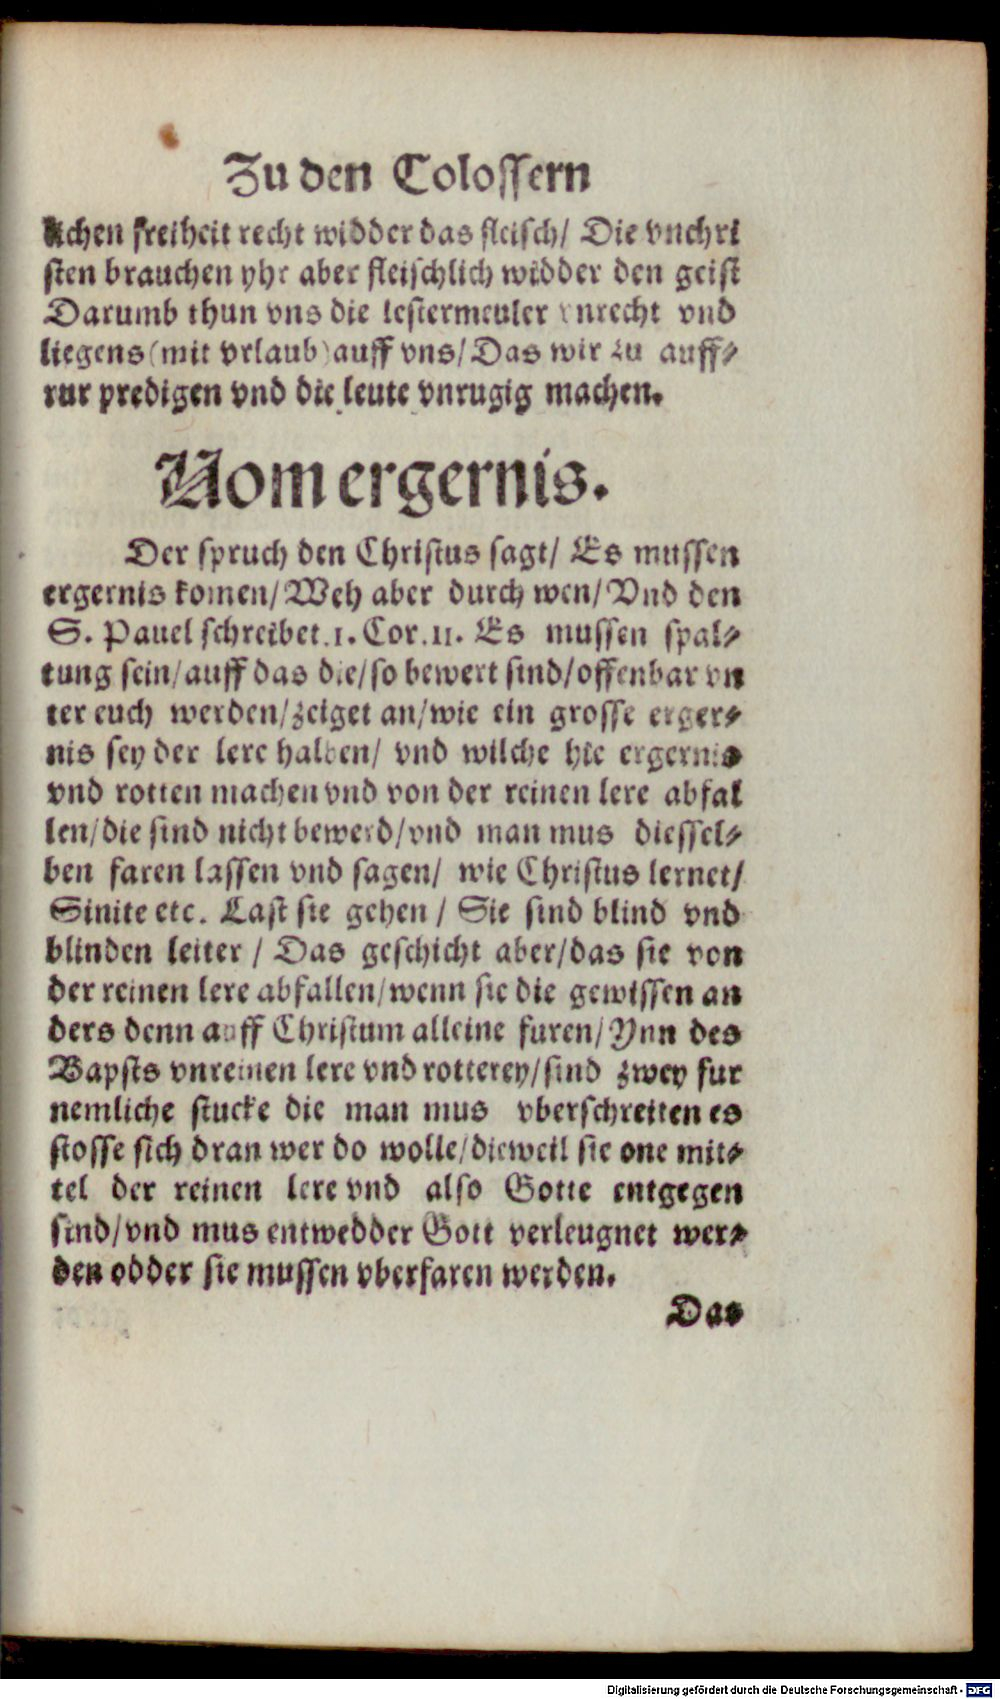 Zu den Colossern
lichen freiheit recht widder das fleisch/ Die vnchri
sten brauchen yhr aber fleischlich widder den geist
Darumb thun vns die lestermeuler vnrecht vnd
liegens (mit vrlaub) auff vns/ Das wir zu auff⸗
rur predigen vnd die leute vnrugig machen.
Vom ergernis.
Der spruch den Christus sagt/ Es mussen
ergernis komen/ Weh aber durch wen/ Vnd den
S. Pauel schreibet.1. Cor.11. Es mussen spal⸗
tung sein/ auff das die/ so bewert sind/ offenbar vn
ter euch werden/ zeiget an/ wie ein grosse erger⸗
nis sey der lere halben/ vnd wilche hie ergernis
vnd rotten machen vnd von der reinen lere abfal
len/ die sind nicht bewerd/ vnd man mus diessel⸗
ben faren lassen vnd sagen/ wie Christus lernet/
Sinite etc. Last sie gehen / Sie sind blind vnd
blinden leiter / Das geschicht aber/ das sie von
der reinen lere abfallen/ wenn sie die gewissen an
ders denn auff Christum alleine furen/ Ynn des
Bapsts vnreinen lere vnd rotterey/ sind zwey fur
nemliche stucke die man mus vberschreiten es
stosse sich dran wer do wolle/ dieweil sie one mit⸗
tel der reinen lere vnd also Gotte entgegen
sind/ vnd mus entwedder Gott verleugnet wer⸗
den odder sie mussen vberfaren werden.
Das
Digitalisierung gefördert durch die Deutsche Forschungsgemeinschaft - DFG